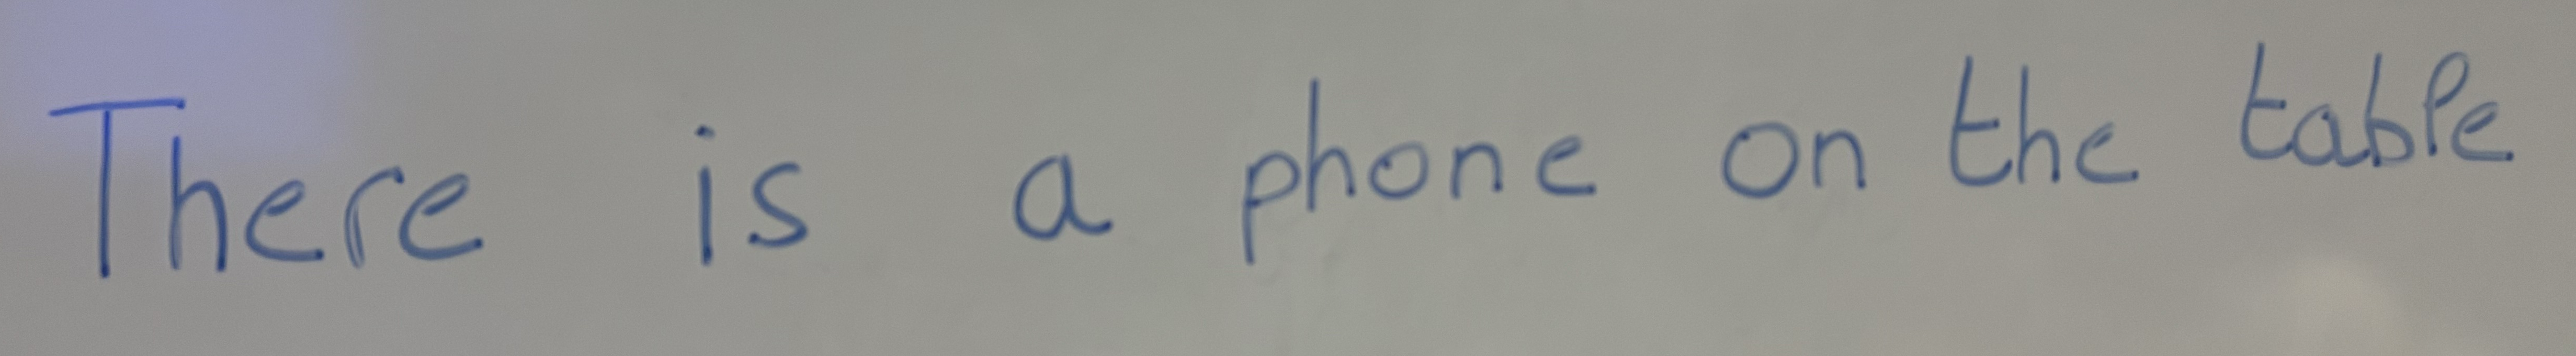 There is a phone on the table